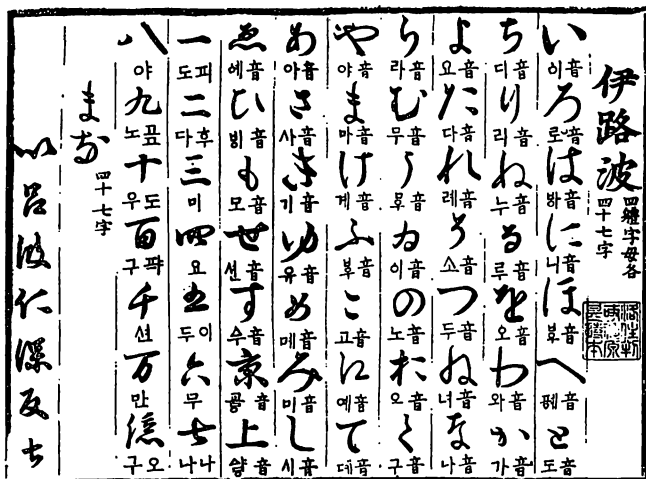 伊路波 四體字母各四十七字
い 이音 ろ 로音 は 音 に 니音 ほ 音 へ 폐音 と 도音
ち 디音 り 리音 ぬ 누音 る 루音 を 오音 わ 와音 か 가音
よ 요音 た 다音 れ 례音 そ 소音 つ 두音 ね 녀音 な 나音
ら 라音 む 무音 う 音 ゐ 이音 の 노音 お 오音 く 구音
や 야音 ま 마音 け 계音 ふ 音 こ 고音 え 예音 て 뎨音
あ 아音 さ 사音 き 기音 ゆ 유音 め 몌音 み 미音 し 시音
ゑ 音 ひ 音 も 모音 せ 音 す 수音 京 音 上 音
一 피도 二 후다 三 미 四 요 五 이두 六 무 七 나나
八 야 九 十 도우 百 千 션 万 만 億 오구
まな 四十七字
以呂波仁保反止